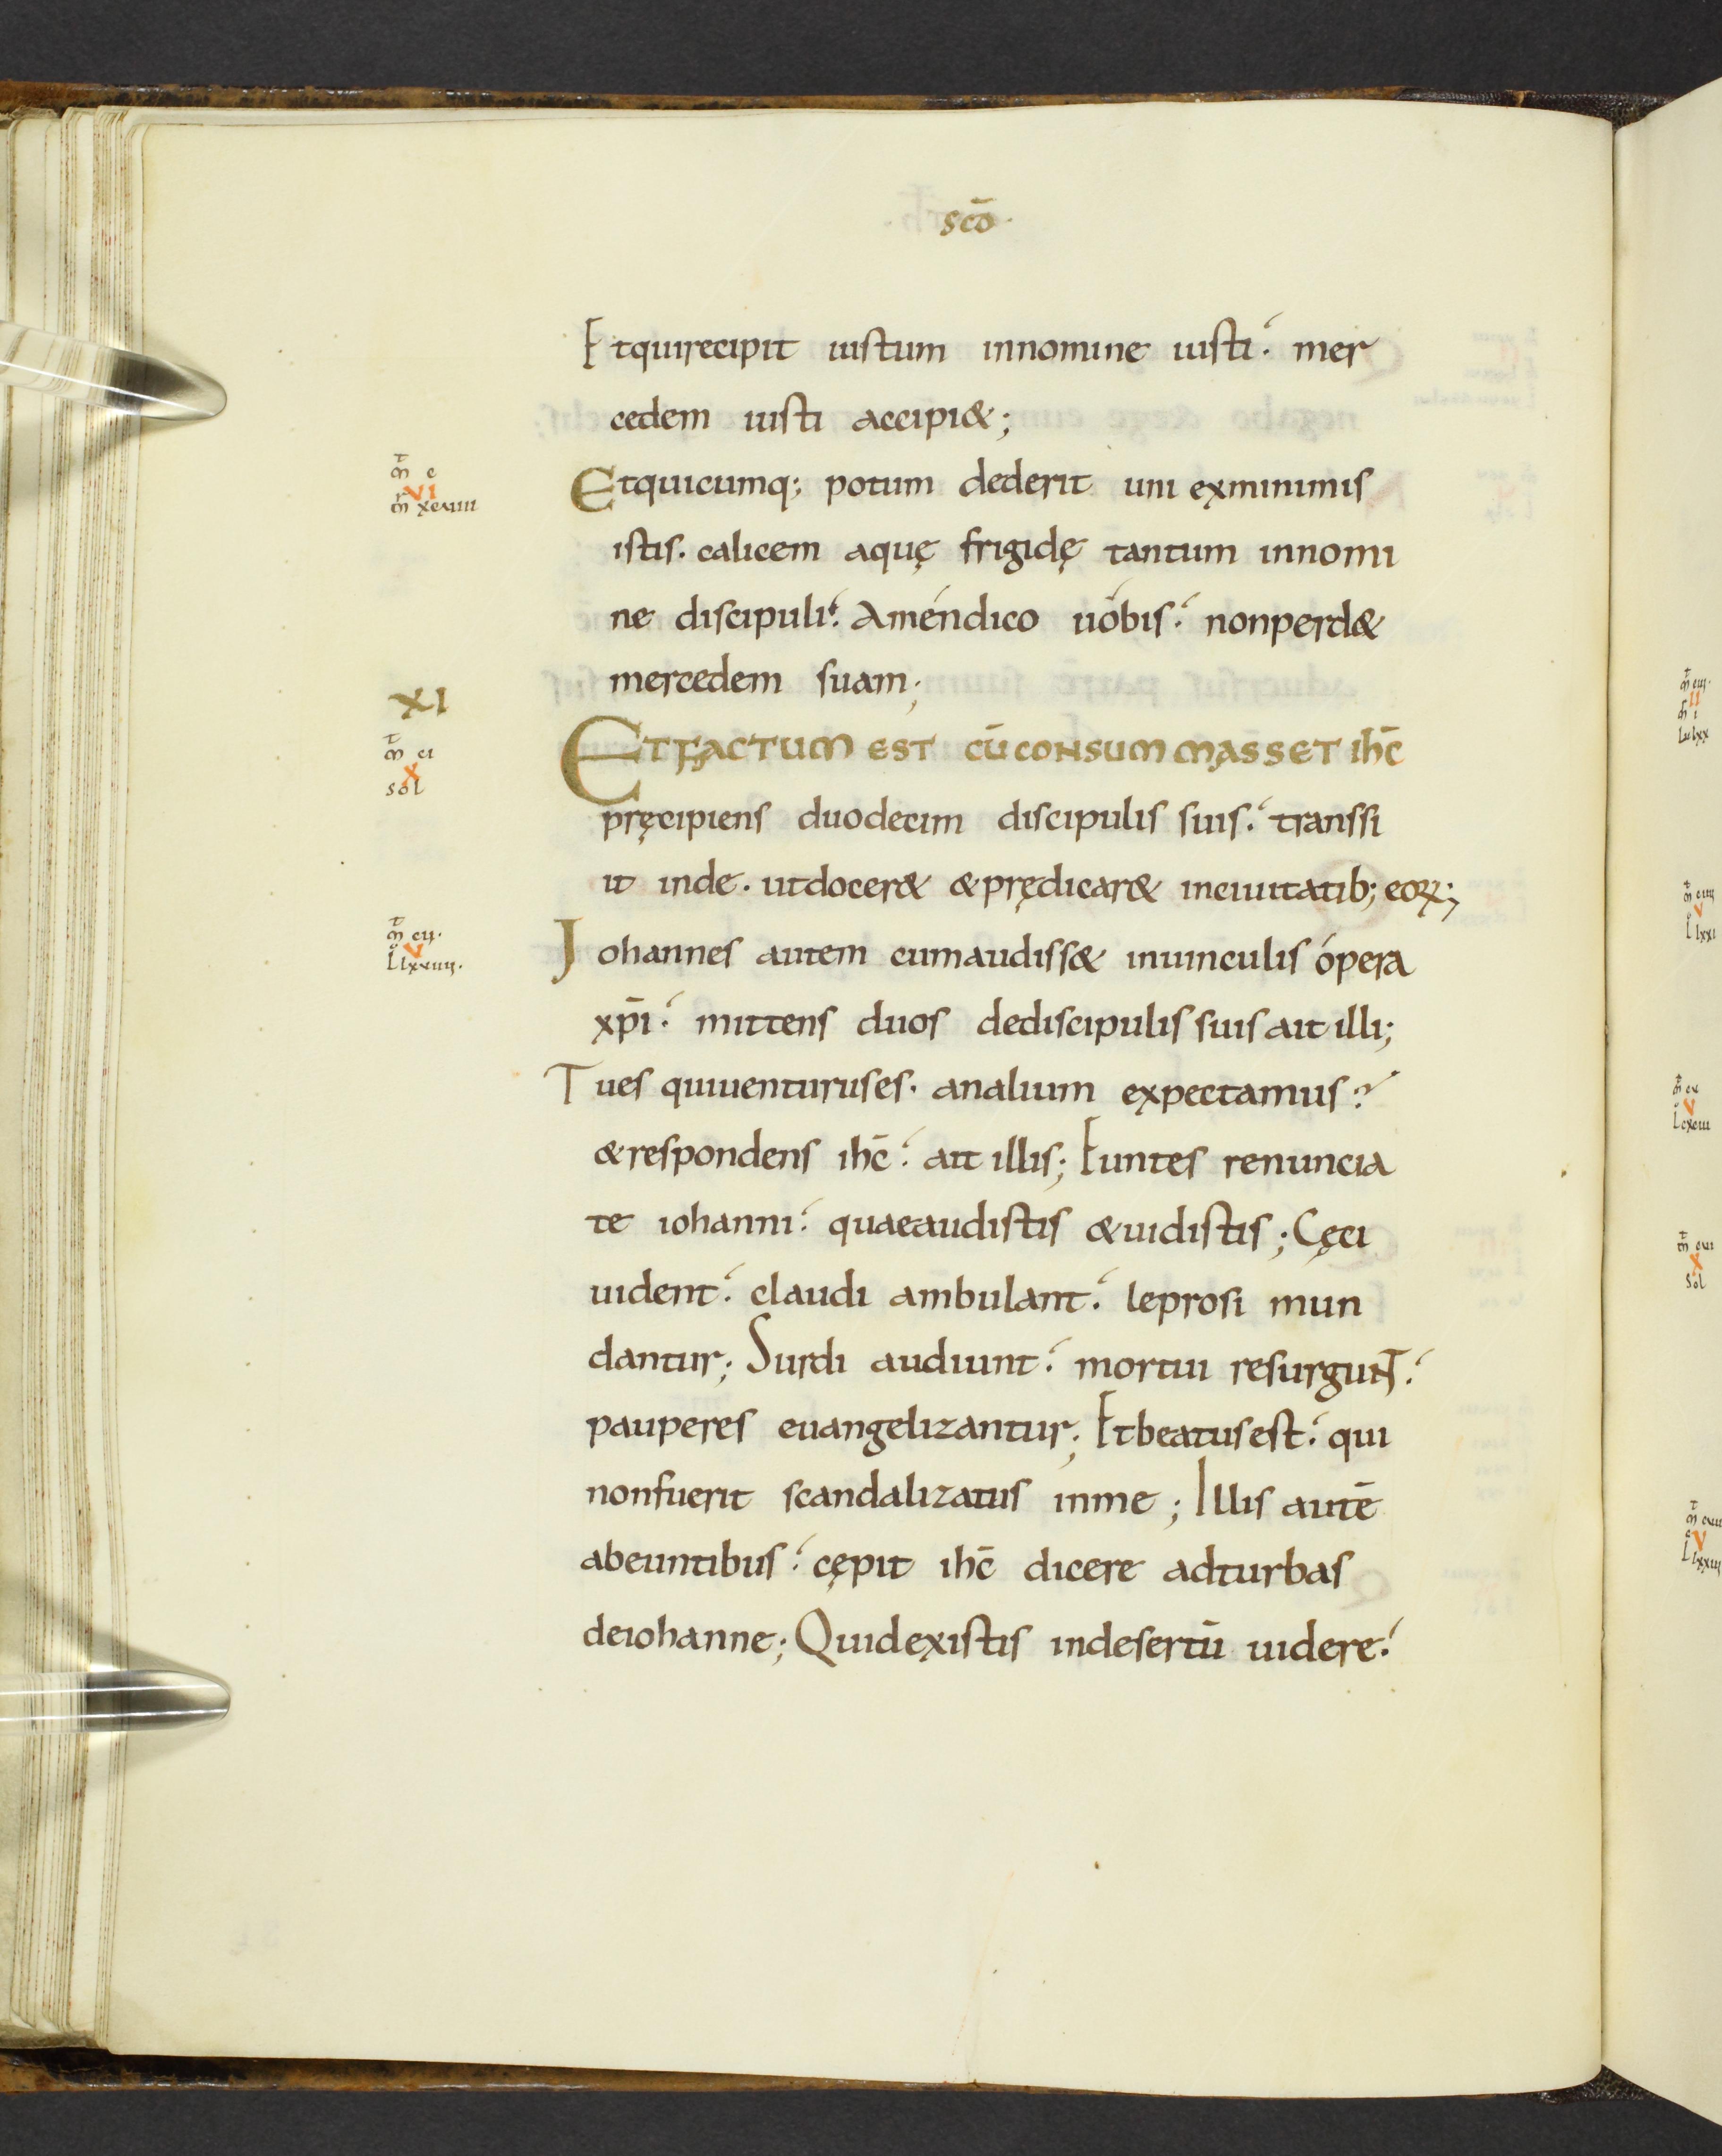 scō·
Et qui recipit iustum in nomine iusti· mer
cedem iusti accipi&;
mt c
VI
mr xcuiiii
Et quicumq; potum dederit uni ex minimis
istis. calicem aquę frigidę tantum in nomi
ne discipuli· Amén dico uóbis· non perd&
mercedem suam;
XI
mt ci
X
sol
ET FACTUM EST CŪ CONSUMMASSET IHC̄
pręcipiens duodecim discipulis suis· transsi
it inde. ut docer& & prędicar& in ciuitatib; eoꝝ;
mt cii.
V
L lxuiiii.
Iohannes autem cum audiss& in uinculis ópera
xp̄i· mittens duos de discipulis suis ait illi;
Tu es qui uenturus es. an alium expectamus?
& respondens ihc̄· ait illis; Euntes renuncia
te iohanni· quae audistis & uidistis; Cęci
uident· claudi ambulant· leprosi mun
dantur; Surdi audiunt· mortui resurgunt·
pauperes euangelizantur; Et beatus est· qui
non fuerit scandalizatus in me; Illis autē
abeuntibus· cępit ihc̄ dicere ad turbas
de iohanne; Quid existis in desertū uidere·